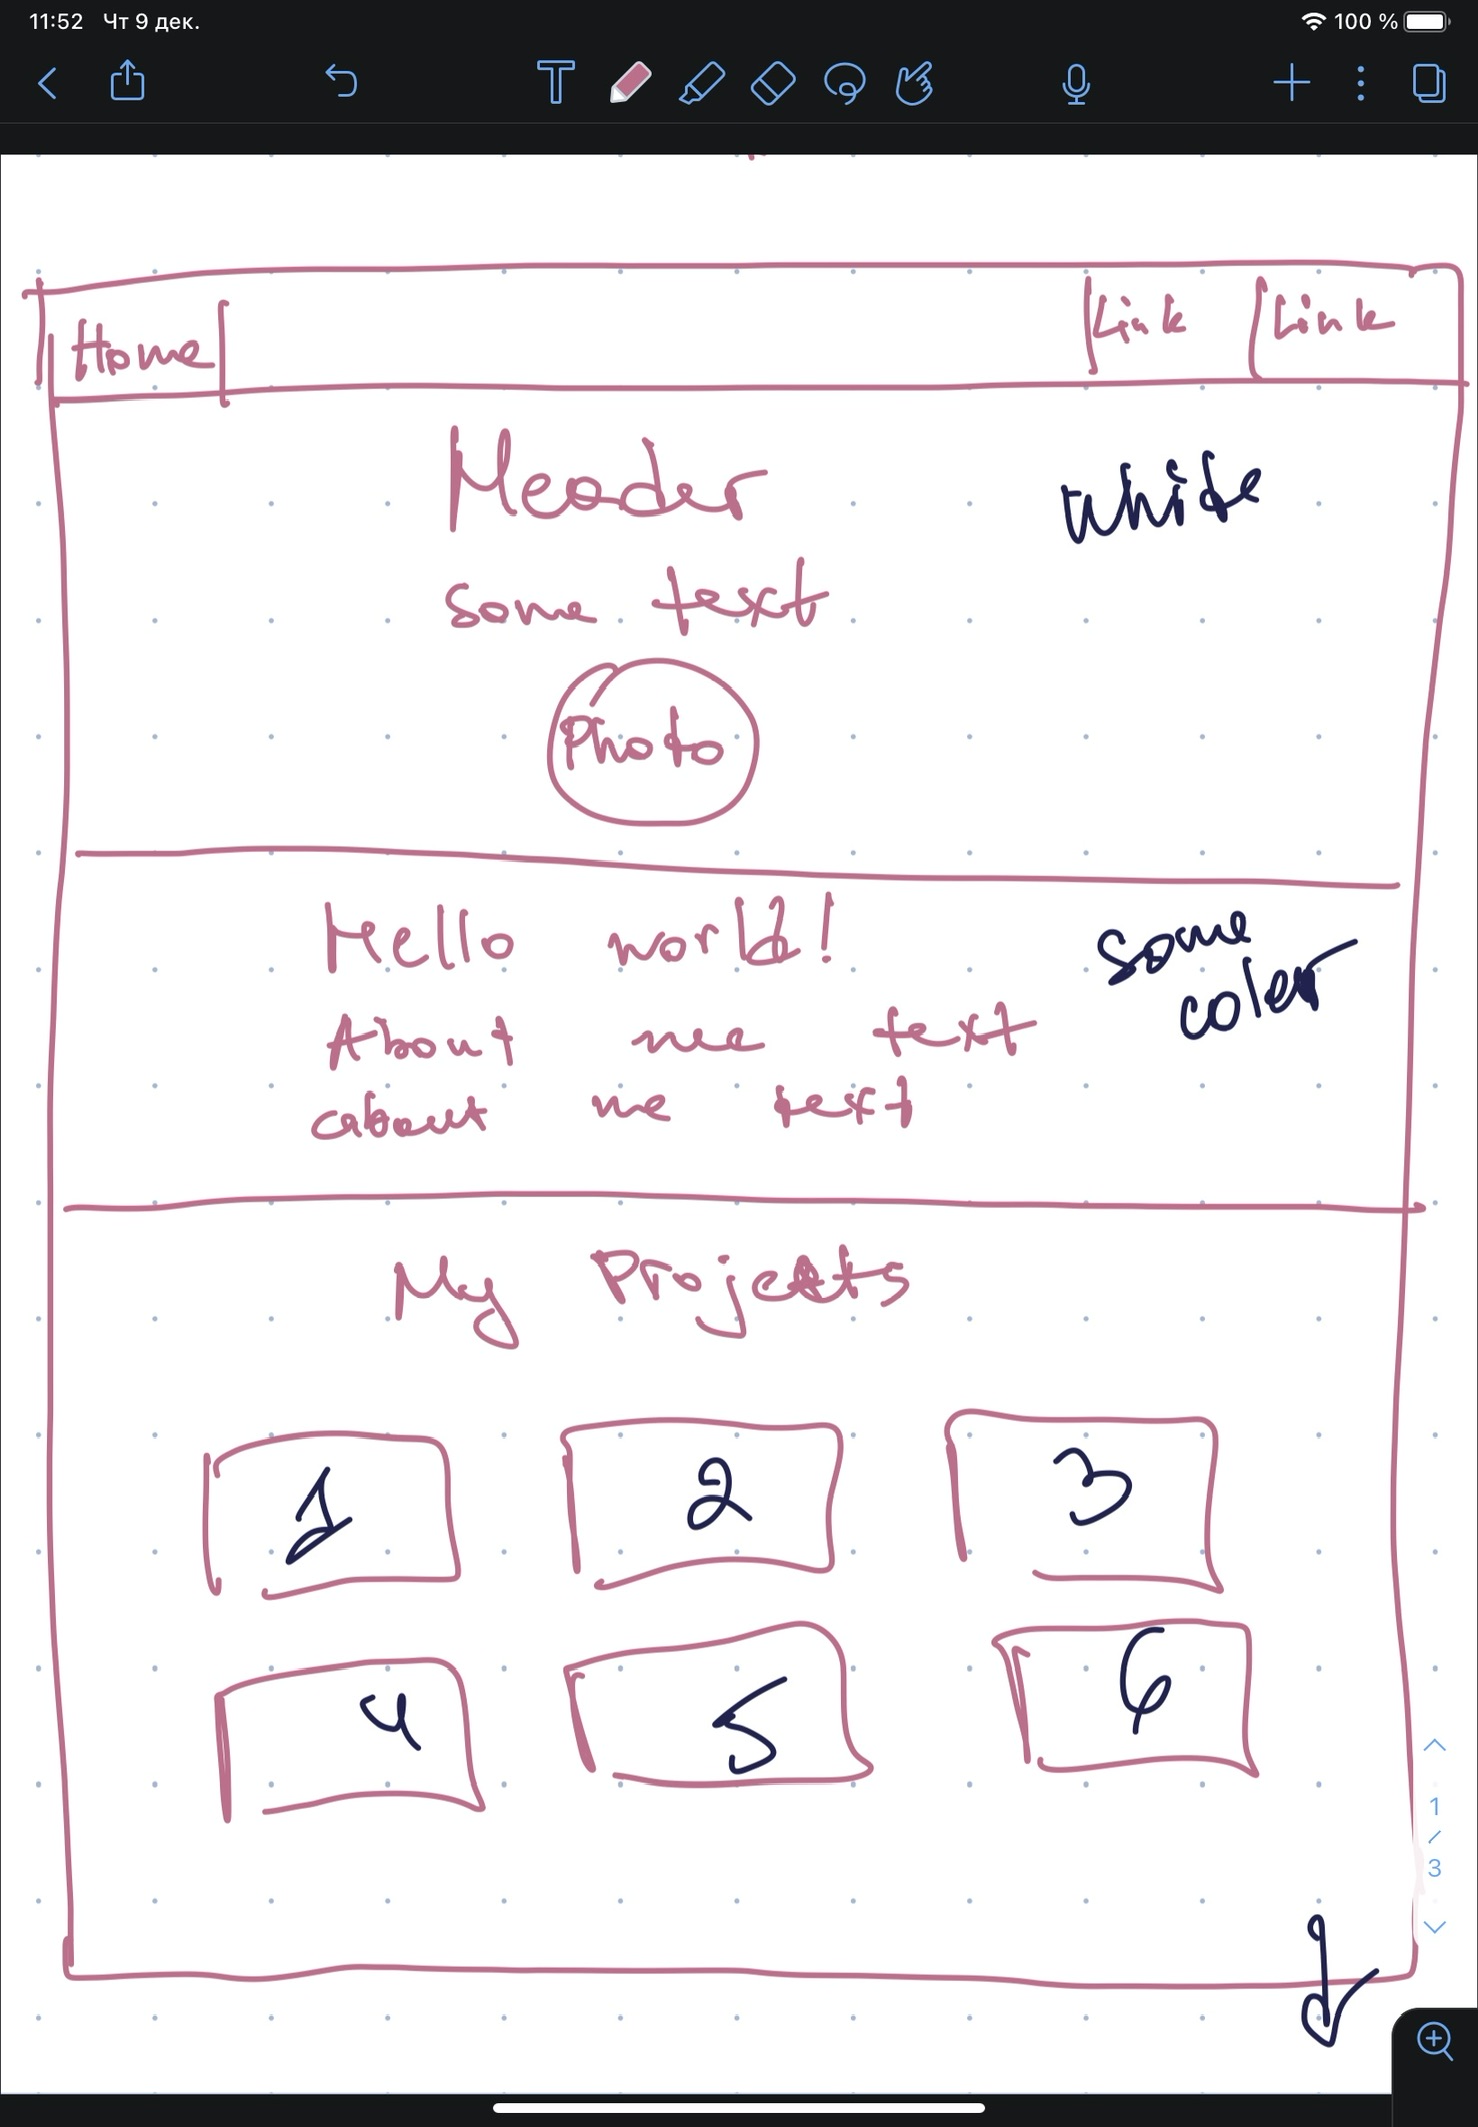 11:52 Чт 9 дек. 100 %
Home Link Link
Header
white
some text
Photo
Hello world!
some
color
About me text
about me text
My Projects
1 2 3
4 5 6
1
/
3